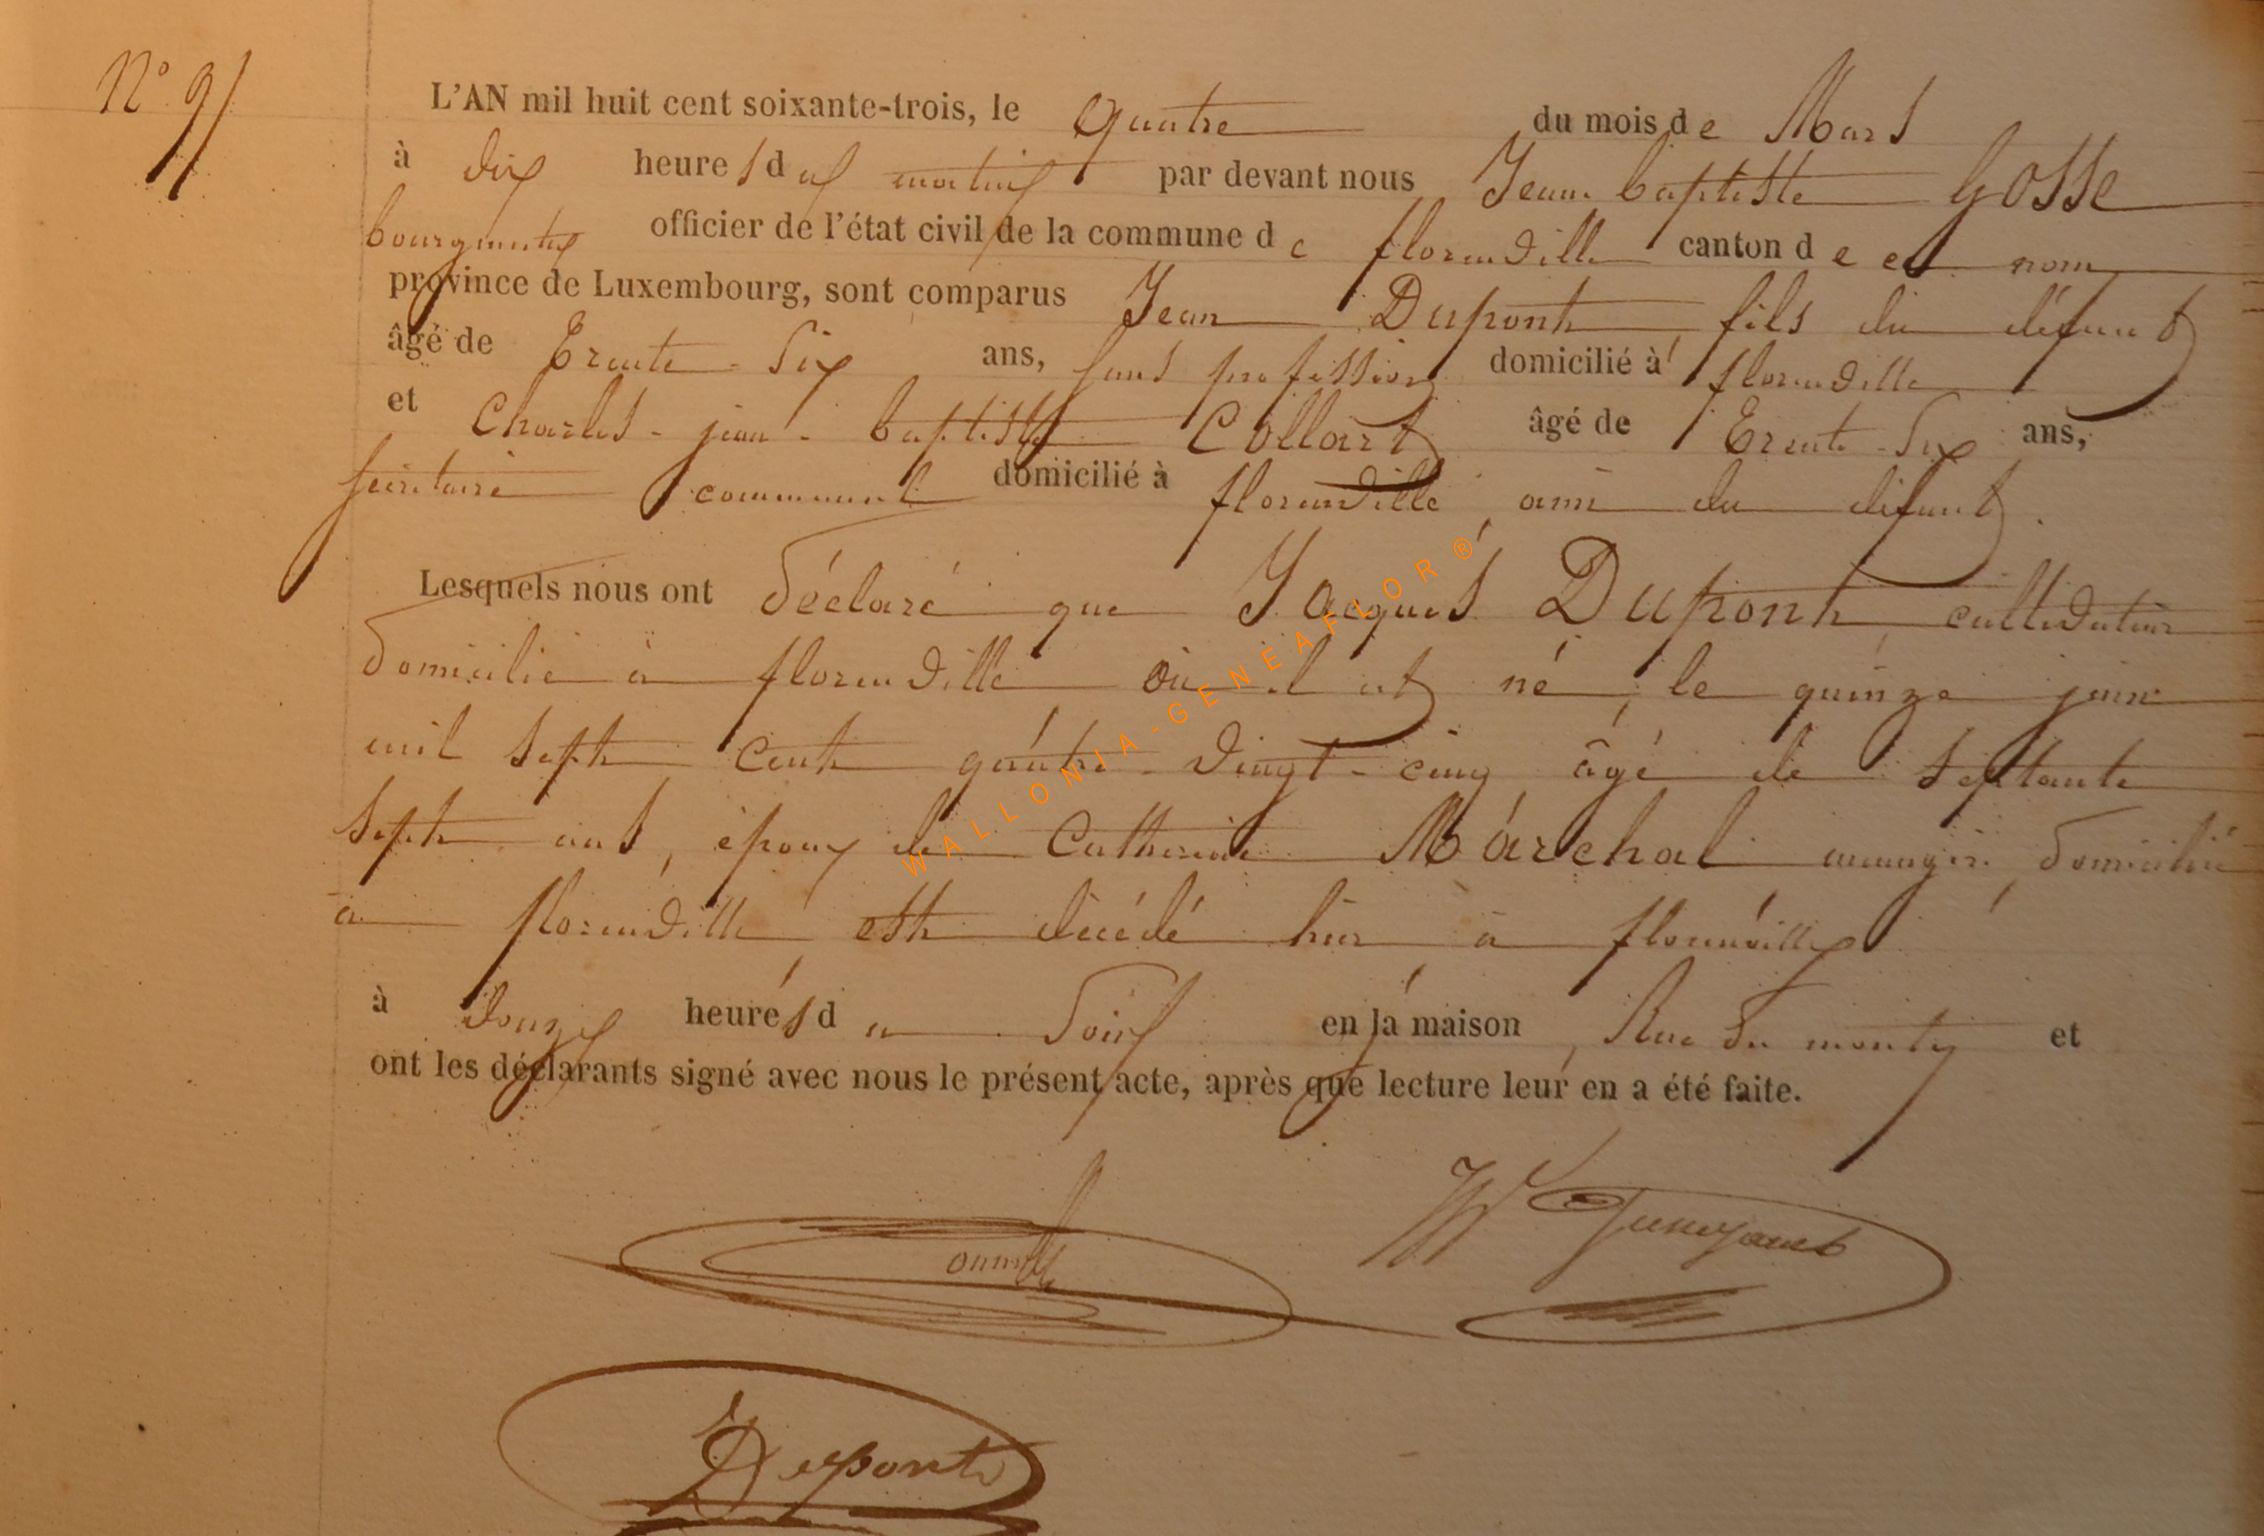 N° 9
L'AN mil huit cent soixante-trois, le quatre du mois de Mars
à dix heures du matin par devant nous Jean baptiste Gosse
bourgmestre officier de l'état civil de la commune de florenville canton de ce nom
province de Luxembourg, sont comparus Jean Dupont, fils du défunt
âgé de Trente-Six ans, sans profession domicilié à florenville
et Charles-jean-baptiste Collart âgé de Trente-Six ans,
secrétaire communal domicilié à florenville, ami du défunt.
Lesquels nous ont déclaré que Jacques Dupont, cultivateur
domicilié à florenville où il est né, le quinze juin
mil sept cent quatre-vingt-cinq âgé de septante
sept ans, époux de Catherine Maréchal ménagère, domiciliée
à florenville, est décédé hier à florenville
à douze heures du Soir en la maison, Rue du monty et
ont les déclarants signé avec nous le présent acte, après que lecture leur en a été faite.
Dupont
WALLONIA-GENEAFLOR®